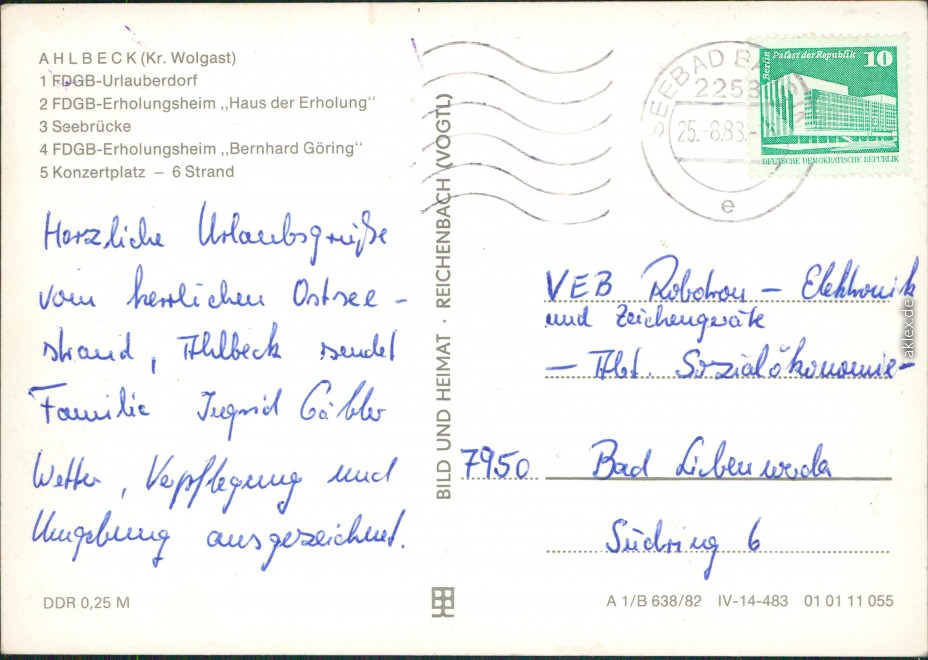 AHLBECK (Kr. Wolgast)
1 FDGB-Urlauberdorf
2 FDGB-Erholungsheim „Haus der Erholung“
3 Seebrücke
4 FDGB-Erholungsheim „Bernhard Göring“
5 Konzertplatz – 6 Strand
Herzliche Urlaubsgrüße
vom herrlichen Ostsee-
strand, Ahlbeck sendet
Familie Ingrid Gäbler
Wetter, Verpflegung und
Umgebung ausgezeichnet.
DDR 0,25 M
BILD UND HEIMAT · REICHENBACH (VOGTL)
SEEBAD
2253
25.-8.83.-
e
Berlin Palast der Republik 10
DEUTSCHE DEMOKRATISCHE REPUBLIK
VEB Robotron – Elektronik
und Zeichengeräte
– Abt. Sozialökonomie –
7950 Bad Liebenwerda
Südring 6
A 1/B 638/82 IV-14-483 01 01 11 055
aklex.de